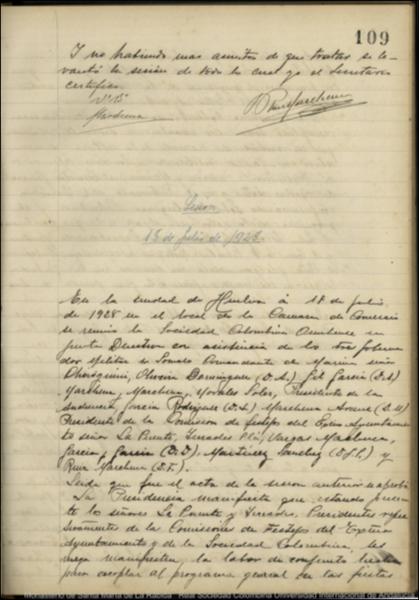 109
Y no habiendo mas asuntos de que tratar se le-
vantó la sesión de todo lo cual yo el Secretario
certifico.
Vº Bº
Marchena
Sesion
18 de Julio de 1928
En la ciudad de Huelva á 18 de julio
de 1928 en el local de la Camara de Comercio
se reunió la Sociedad Colombina Onubense en
junta Directiva con asistencia de los Sres Goberna-
dor Militar Comandante de Marina señor
Oliveira Dominguez (D. A.) Gil Garcia (D. A)
Marchena, Marchena, Morales Soler, Presidente de la
Audiencia Garcia Rodriguez Marchena
Presidente de la Comision de festejos del Excmo Ayuntamien-
to señor La Puente, Terrades Plá, Vargas Machuca,
Garcia y Garcia Martinez Sanchez y
Ruiz Marchena (D. F.).
Leida que fue el acta de la sesión anterior se aprobó.
La Presidencia manifiesta que estando presen-
te los señores La Puente y Terrades, Presidentes respec-
tivamente de la Comision de Festejos del Excmo
Ayuntamiento y de la Sociedad Colombina, les
ruega manifiesten la labor de conjunto
para acoplar al programa general en las fiestas
Monasterio de Santa María de La Rábida - Real Sociedad Colombina Universidad Internacional de Andalucía